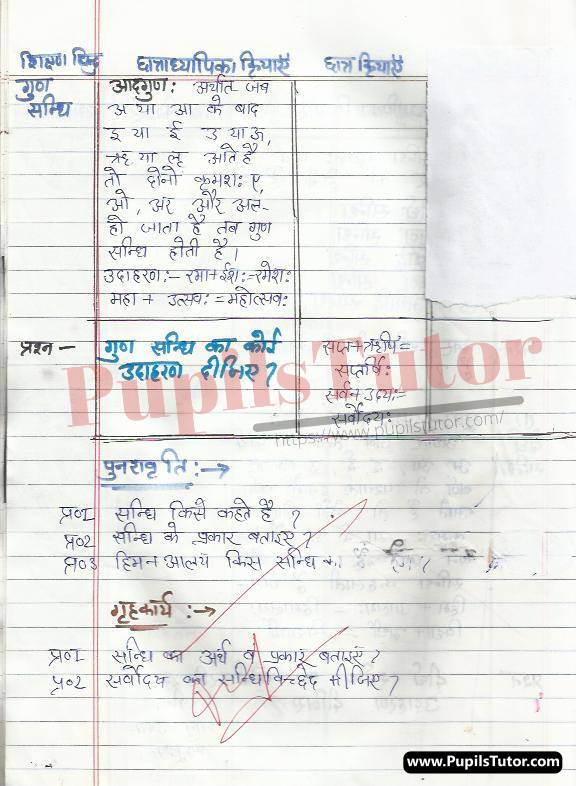 शिक्षण बिन्दु छात्राध्यापिका क्रियाएँ छात्र क्रियाएँ
गुण सन्धि
आदगुण: अर्थात जब
अ या आ के बाद
इ या ई उ या ऊ,
ऋ या लृ आते है
तो दोनो क्रमश: ए,
ओ, अर और अल-
हो जाता है तब गुण
सन्धि होती है।
उदाहरण:- रमा+ईश:=रमेश:
महा + उत्सव: = महोत्सव:
प्रश्न -
गुण सन्धि का कोई
उदाहरण दीजिए?
सप्त+ऋषि:=
सप्तर्षि:
सर्व+उदय:=
सर्वोदय:
PupilsTutor
https://www.pupilstutor.com/
पुनरावृति:→
प्र०1 सन्धि किसे कहते है?
प्र०2 सन्धि के प्रकार बताइए?
प्र०3 हिम+आलय किस सन्धि का
गृहकार्य:→
प्र०1 सन्धि का अर्थ व प्रकार बताइएं?
प्र०2 सर्वोदय का सन्धिविच्छेद कीजिए?
www.PupilsTutor.com